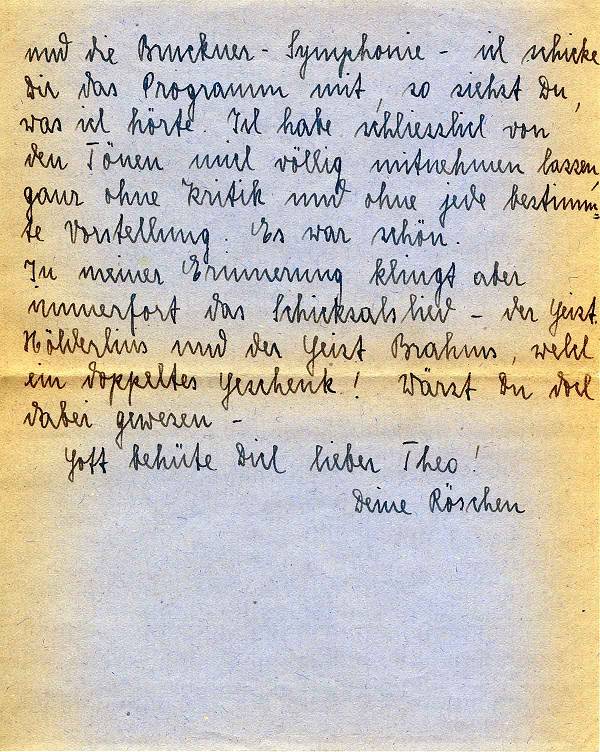 und die Bruckner-Symphonie - ich schicke
Dir das Programm mit, so siehst Du,
was ich hörte. Ich habe schliesslich von
den Tönen mich völlig mitnehmen lassen,
ganz ohne Kritik und ohne jede bestimm=
te Vorstellung. Es war schön.
In meiner Erinnerung klingt aber
immerfort das Schicksalslied - der Geist
Hölderlins und der Geist Brahms, welch
ein doppeltes Geschenk! Wärst Du doch
dabei gewesen -
Gott behüte Dich lieber Theo!
Deine Röschen